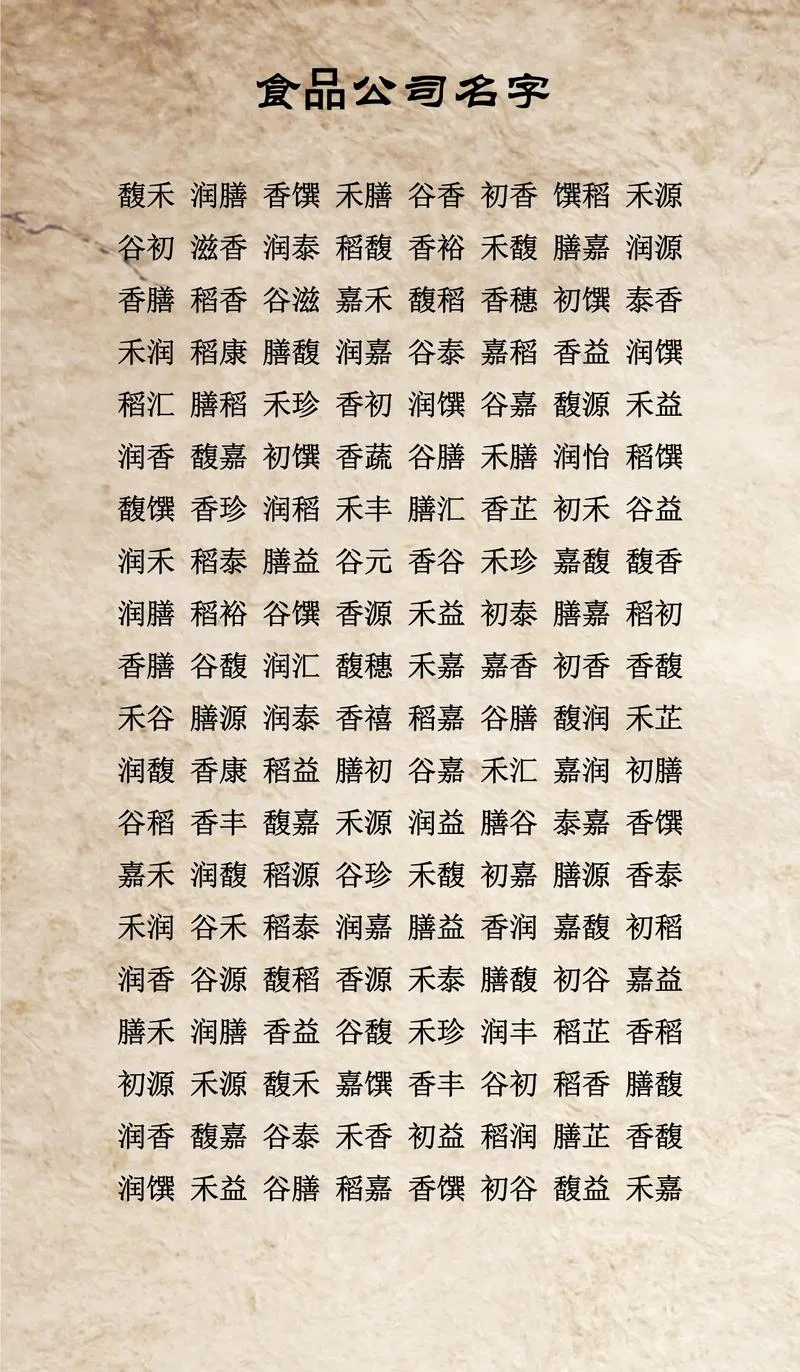 食品公司名字
馥禾 润膳 香馔 禾膳 谷香 初香 馔稻 禾源
谷初 滋香 润泰 稻馥 香裕 禾馥 膳嘉 润源
香膳 稻香 谷滋 嘉禾 馥稻 香穗 初馔 泰香
禾润 稻康 膳馥 润嘉 谷泰 嘉稻 香益 润馔
稻汇 膳稻 禾珍 香初 润馔 谷嘉 馥源 禾益
润香 馥嘉 初馔 香蔬 谷膳 禾膳 润怡 稻馔
馥馔 香珍 润稻 禾丰 膳汇 香芷 初禾 谷益
润禾 稻泰 膳益 谷元 香谷 禾珍 嘉馥 馥香
润膳 稻裕 谷馔 香源 禾益 初泰 膳嘉 稻初
香膳 谷馥 润汇 馥穗 禾嘉 嘉香 初香 香馥
禾谷 膳源 润泰 香禧 稻嘉 谷膳 馥润 禾芷
润馥 香康 稻益 膳初 谷嘉 禾汇 嘉润 初膳
谷稻 香丰 馥嘉 禾源 润益 膳谷 泰嘉 香馔
嘉禾 润馥 稻源 谷珍 禾馥 初嘉 膳源 香泰
禾润 谷禾 稻泰 润嘉 膳益 香润 嘉馥 初稻
润香 谷源 馥稻 香源 禾泰 膳馥 初谷 嘉益
膳禾 润膳 香益 谷馥 禾珍 润丰 稻芷 香稻
初源 禾源 馥禾 嘉馔 香丰 谷初 稻香 膳馥
润香 馥嘉 谷泰 禾香 初益 稻润 膳芷 香馥
润馔 禾益 谷膳 稻嘉 香馔 初谷 馥益 禾嘉